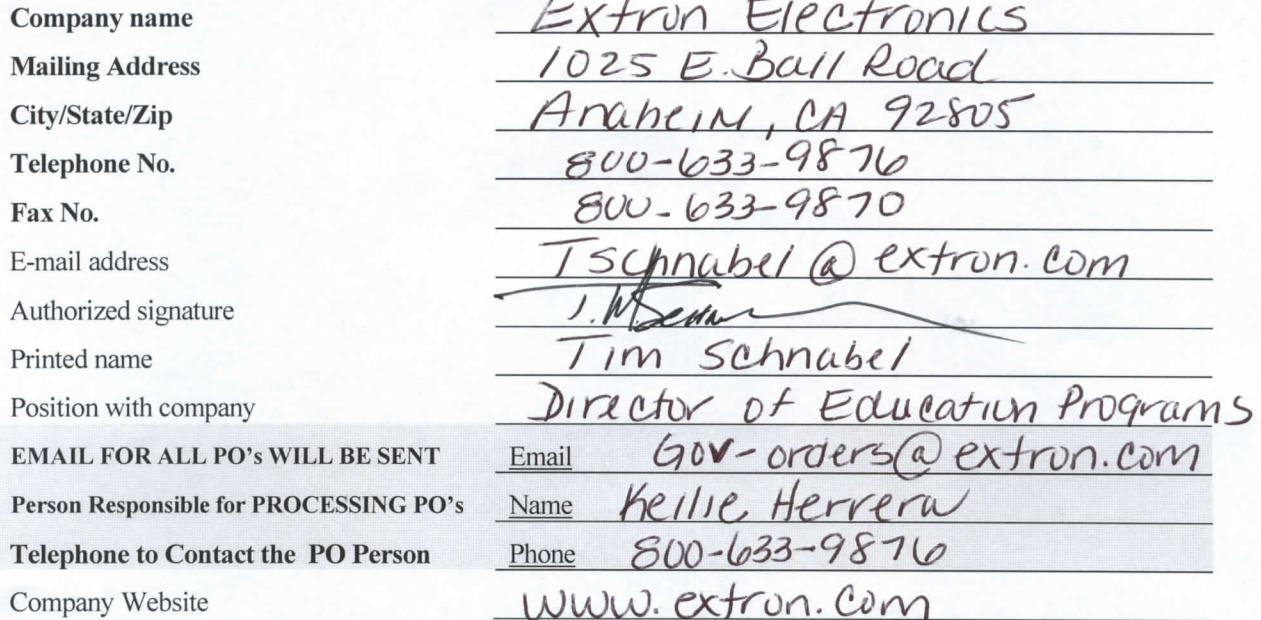 Company name Extron Electronics
Mailing Address 1025 E. Ball Road
City/State/Zip Anaheim, CA 92805
Telephone No. 800-633-9876
Fax No. 800-633-9870
E-mail address Tschnabel@extron.com
Authorized signature
Printed name Tim Schnabel
Position with company Director of Education Programs
EMAIL FOR ALL PO's WILL BE SENT Email Gov-orders@extron.com
Person Responsible for PROCESSING PO's Name Keilie Herrera
Telephone to Contact the PO Person Phone 800-633-9876
Company Website www.extron.com